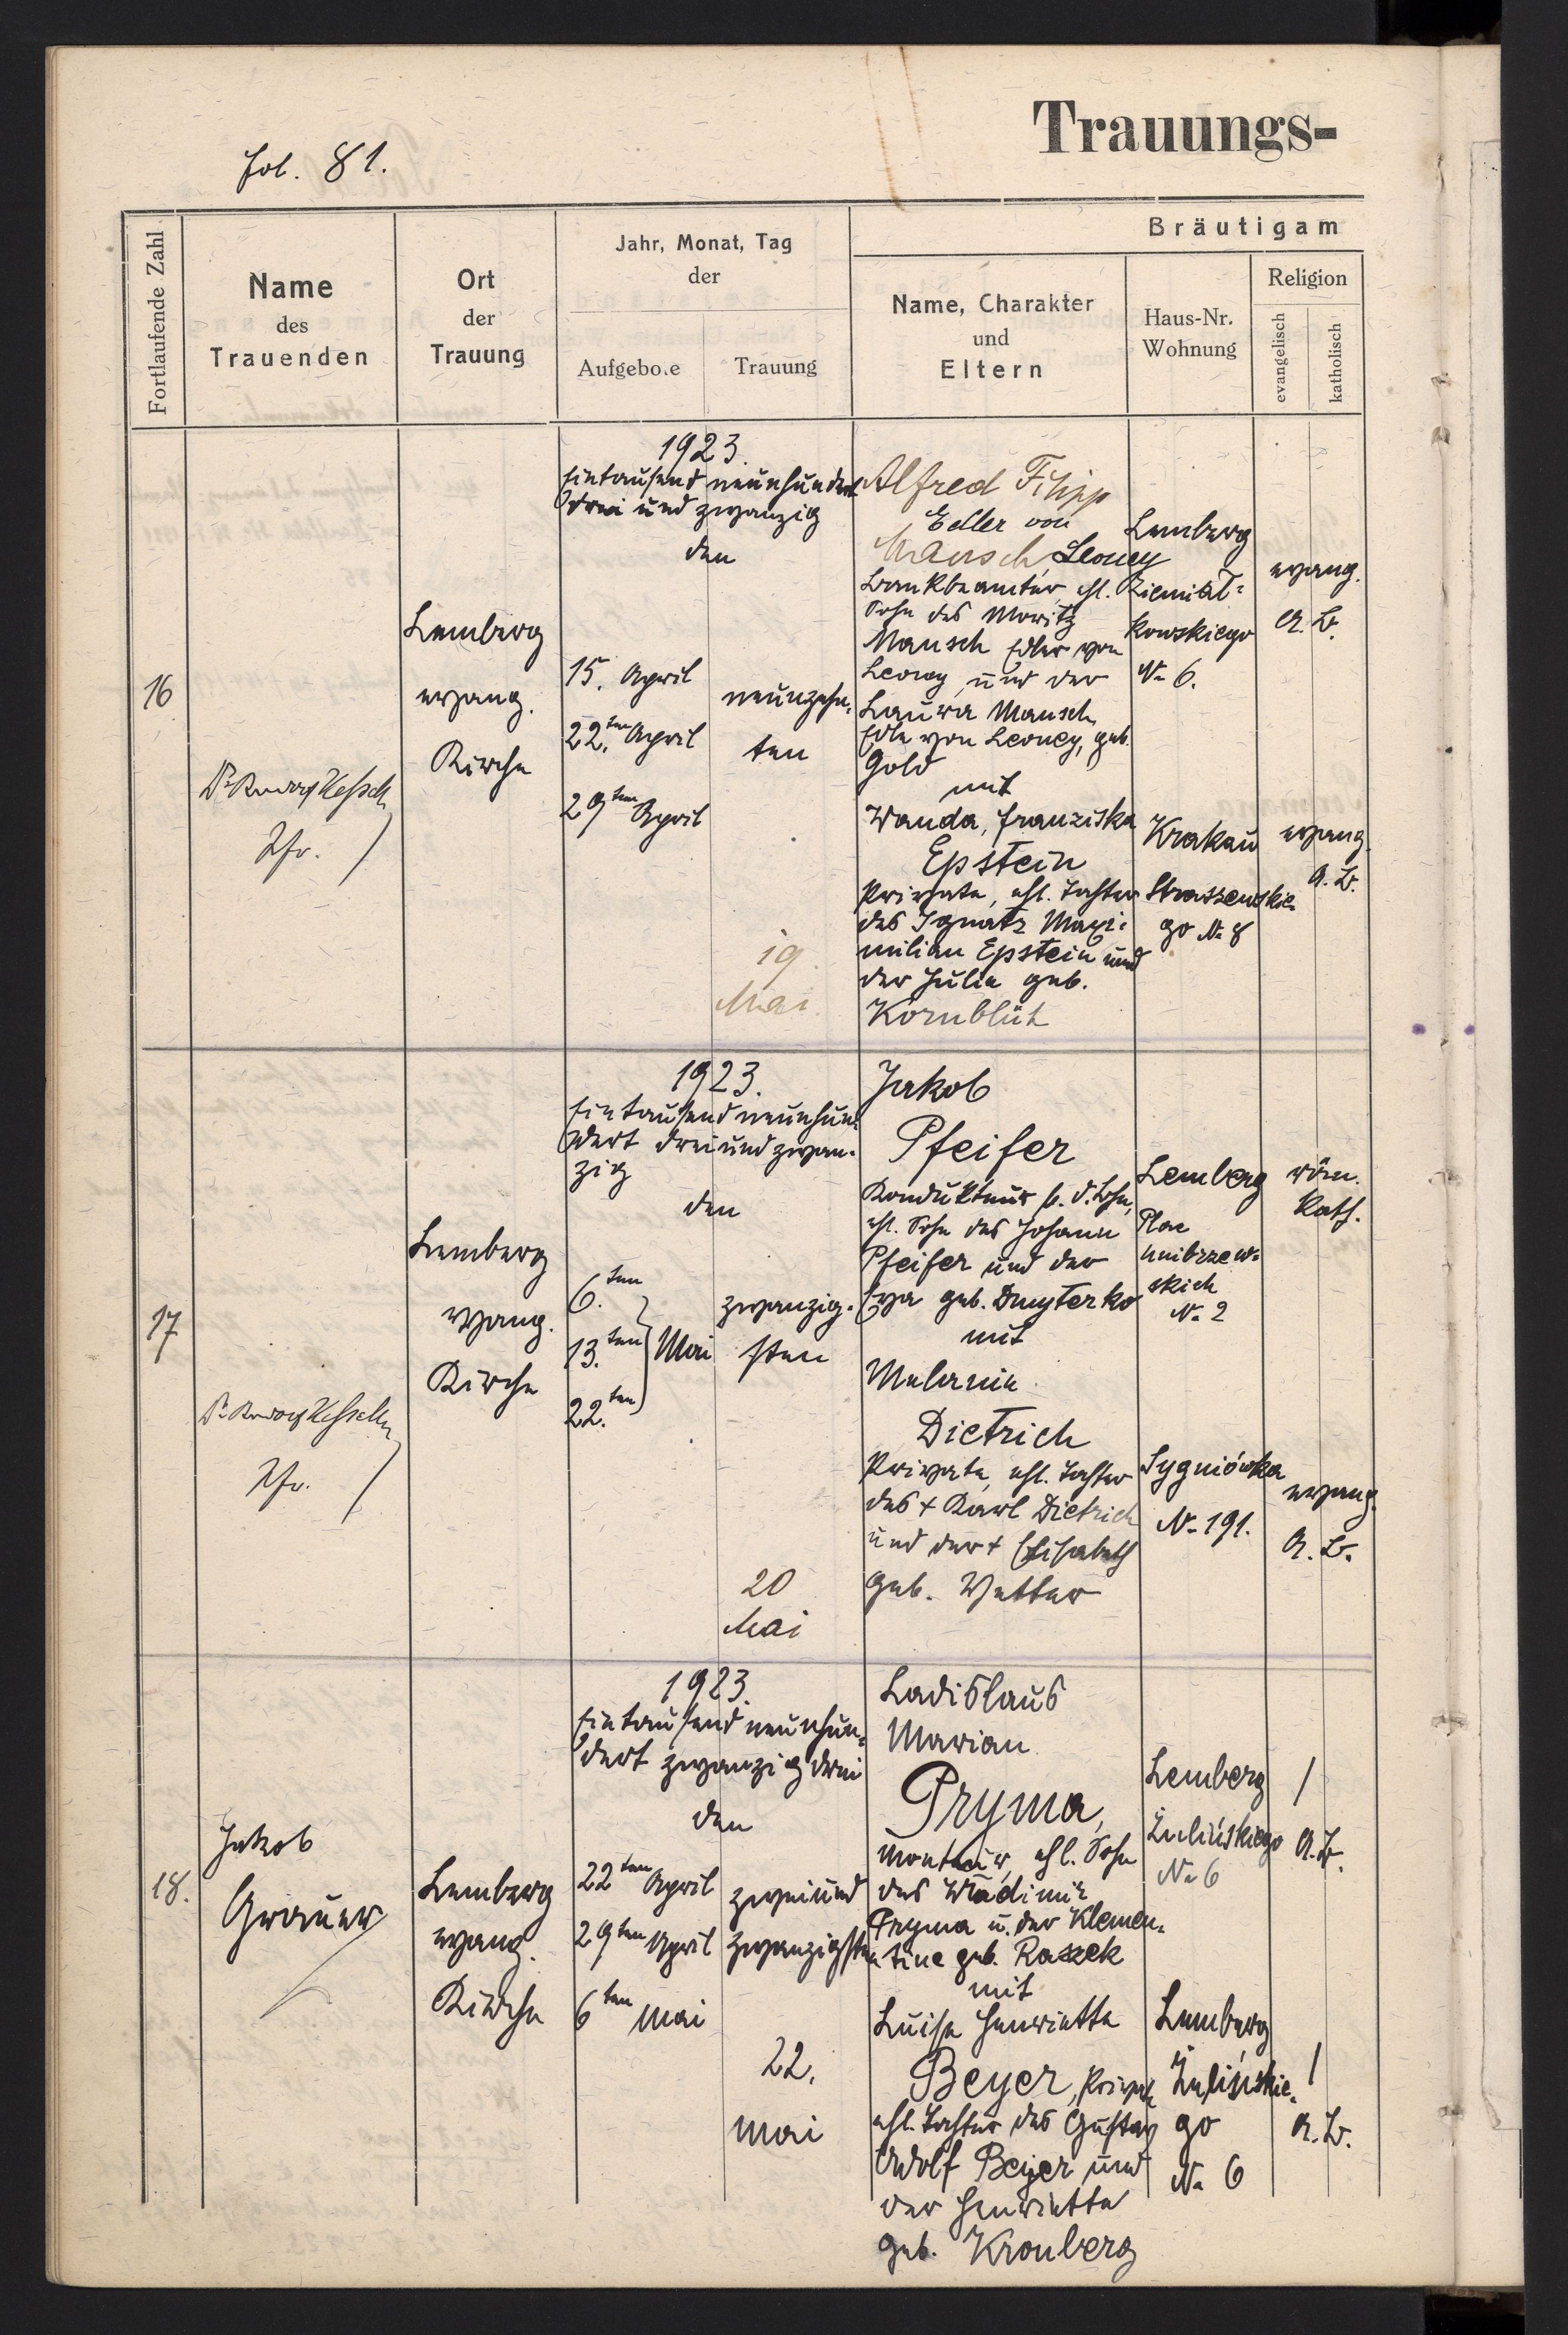 Trauungs-
fol. 81.
Fortlaufende Zahl
Name
des
Trauenden
Ort
der
Trauung
Jahr, Monat, Tag
der
Aufgebote
Trauung
Bräutigam
Name, Charakter
und
Eltern
Haus-Nr.
Wohnung
Religion
evangelisch
katholisch
16
Pfr.
Lemberg
evang.
Kirche
1923.
Eintausend neunhundert
drei und zwanzig
den
15. April
22.ten April
29ten April
neunzehn-
ten
19.
Mai
Alfred Filipp
Edler von
Mansch, Leoney
Bankbeamter, ehl.
Sohn des Moritz
Mansch Edler von
Leoney und der
Laura Mansch
Edle von Leoney, geb.
Gold
mit
Wanda, Franziska
Epstein
Private, ehl. Tochter
des Ignatz Maxi-
milian Epstein und
der Julie geb.
Kornblüh
Lemberg
Ziemiał-
kowskiego
No 6.
Krakau
Straszewskie-
go No 8
evang.
A. B.
evang.
A. B.
17
Pfr.
Lemberg
evang.
Kirche
1923.
Eintausend neunhun-
dert drei und zwan-
zig
den
6.ten
13.ten Mai
22.ten
zwanzig-
sten
20
Mai
Jakob
Pfeifer
Kondukteur
ehl. Sohn des Johann
Pfeifer und der
Eva geb. Dmyterko
mit
Melanie
Dietrich
Private, ehl. Tochter
des + Karl Dietrich
und der + Elisabeth
geb. Vetter
Lemberg
Plac
skich
No 2
Sygniówka
No 191.
röm.
kath.
evang.
A. B.
18.
Jakob
Grauer
Lemberg
evang.
Kirche
1923.
Eintausend neunhun-
dert zwanzig drei
den
22ten April
29ten April
6ten Mai
zweiund
zwanzigsten
22.
Mai
Ladislaus
Marian
Pryma,
Monteur, ehl. Sohn
des Wladimir
Pryma u. der Klemen-
tine geb. Raszek
mit
Luise Henriette
Beyer, Private
ehl. Tochter des Gustav
Adolf Beyer und
der Henriette
geb. Kronberg
Lemberg
Żulińskiego
No 6
Lemberg
Żulińskie-
go
No 6
/
A. B.
/
A. B.